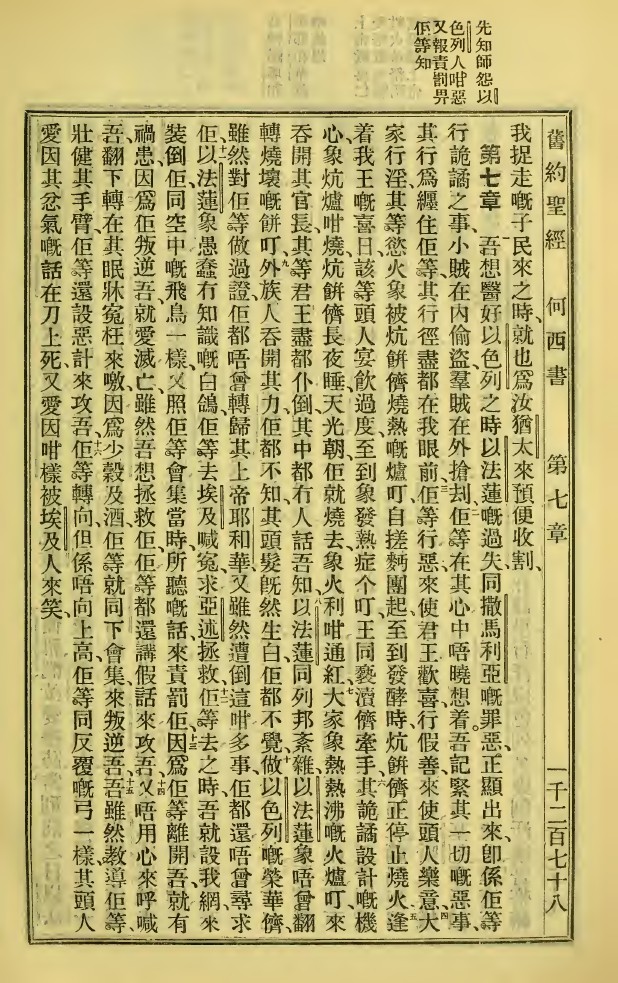 先知師怨以
色列人咁惡
又報責罰畀
佢等知
舊約聖經 何西書 第七章 一千二百七十八
我捉走嘅子民來之時、就也爲汝猶太來預便收割、
第七章 一吾想醫好以色列之時、以法蓮嘅過失、同撒馬利亞嘅罪惡、正顯出來、卽係佢等
行詭譎之事、小賊在內偷盜、羣賊在外搶刦、二佢等在其心中唔曉想着吾記緊其一切嘅惡事、
其行爲纒住佢等、其行徑盡都在我眼前、三佢等行惡來使君王歡喜、行假善來使頭人樂意、四大
家行淫、其等慾火象被炕餅儕燒熱嘅爐叮、自搓麪團起、至到發酵時、炕餅儕正停止燒火、五逢
着我王嘅喜日、該等頭人宴飲過度、至到象發熱症个叮、王同褻瀆儕牽手、六其詭譎設計嘅機
心、象炕爐咁燒、炕餅儕長夜睡、天光朝佢就燒去、象火利咁通紅、七大家象熱熱沸嘅火爐叮、來
吞開其官長、其等君王盡都仆倒、其中都冇人話吾知、八以法蓮同列邦紊雜、以法蓮象唔曾翻
轉燒壞嘅餅叮、九外族人吞開其力、佢都不知、其頭髮旣然生白、佢都不覺、十做以色列嘅榮華儕、
雖然對佢等做過證、佢都唔曾轉歸其上帝耶和華、又雖然遭倒這咁多事、佢都還唔曾尋求
佢、十一以法蓮象愚蠢冇知識嘅白鴿、佢等去埃及喊冤、求亞述拯救、十二佢等去之時、吾就設我網來
裝倒佢、同空中嘅飛鳥一樣、又照佢等會集當時、所聽嘅話來責罰佢、十三因爲佢等離開吾、就有
禍患、因爲佢叛逆吾、就愛滅亡、雖然吾想拯救佢、佢等都還講假話來攻吾、十四又唔用心來呼喊
吾、翻下轉在其眠牀冤枉來噭、因爲少穀及酒、佢等就同下會集來叛逆吾、十五吾雖然教導佢等、
壯健其手臂、佢等還設惡計來攻吾、十六佢等轉向、但係唔向上高、佢等同反覆嘅弓一樣、其頭人
愛因其忿氣嘅話在刀上死、又愛因咁樣被埃及人來笑、